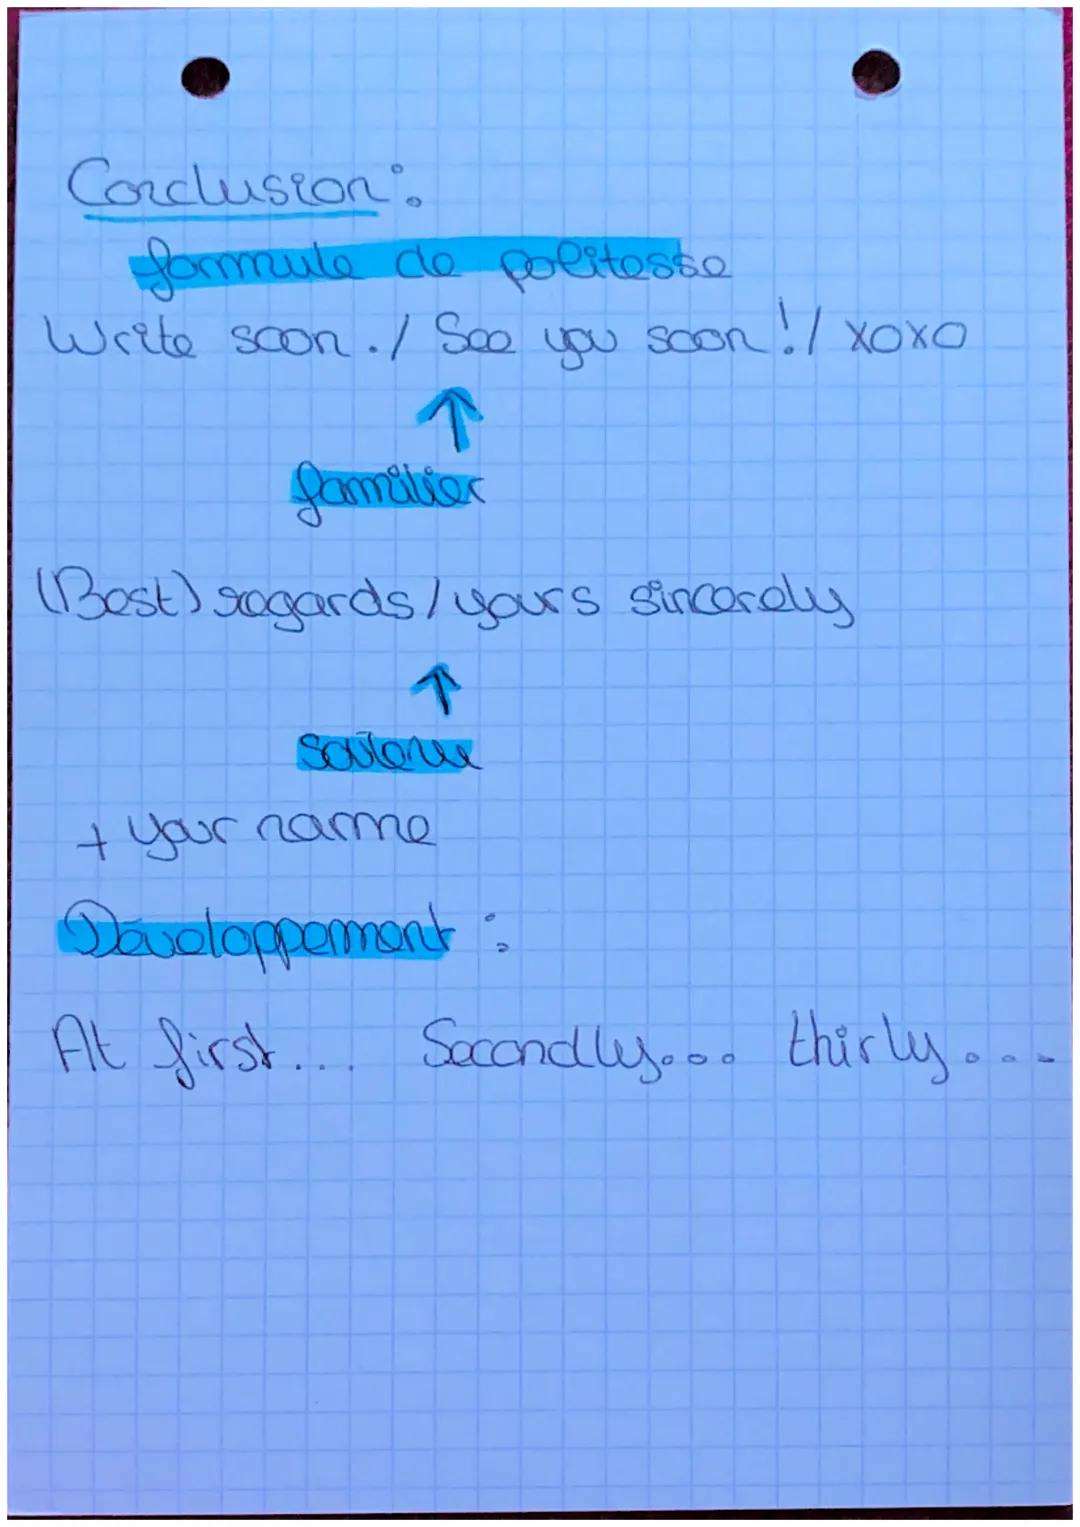 Conclusion :
formule de politesse
Write soon. / See you soon ! / xoxo
↑
familier
(Best) regards / yours sincerely
↑
soutenu
+ your name
Développement :
At first... Secondly... thirly...